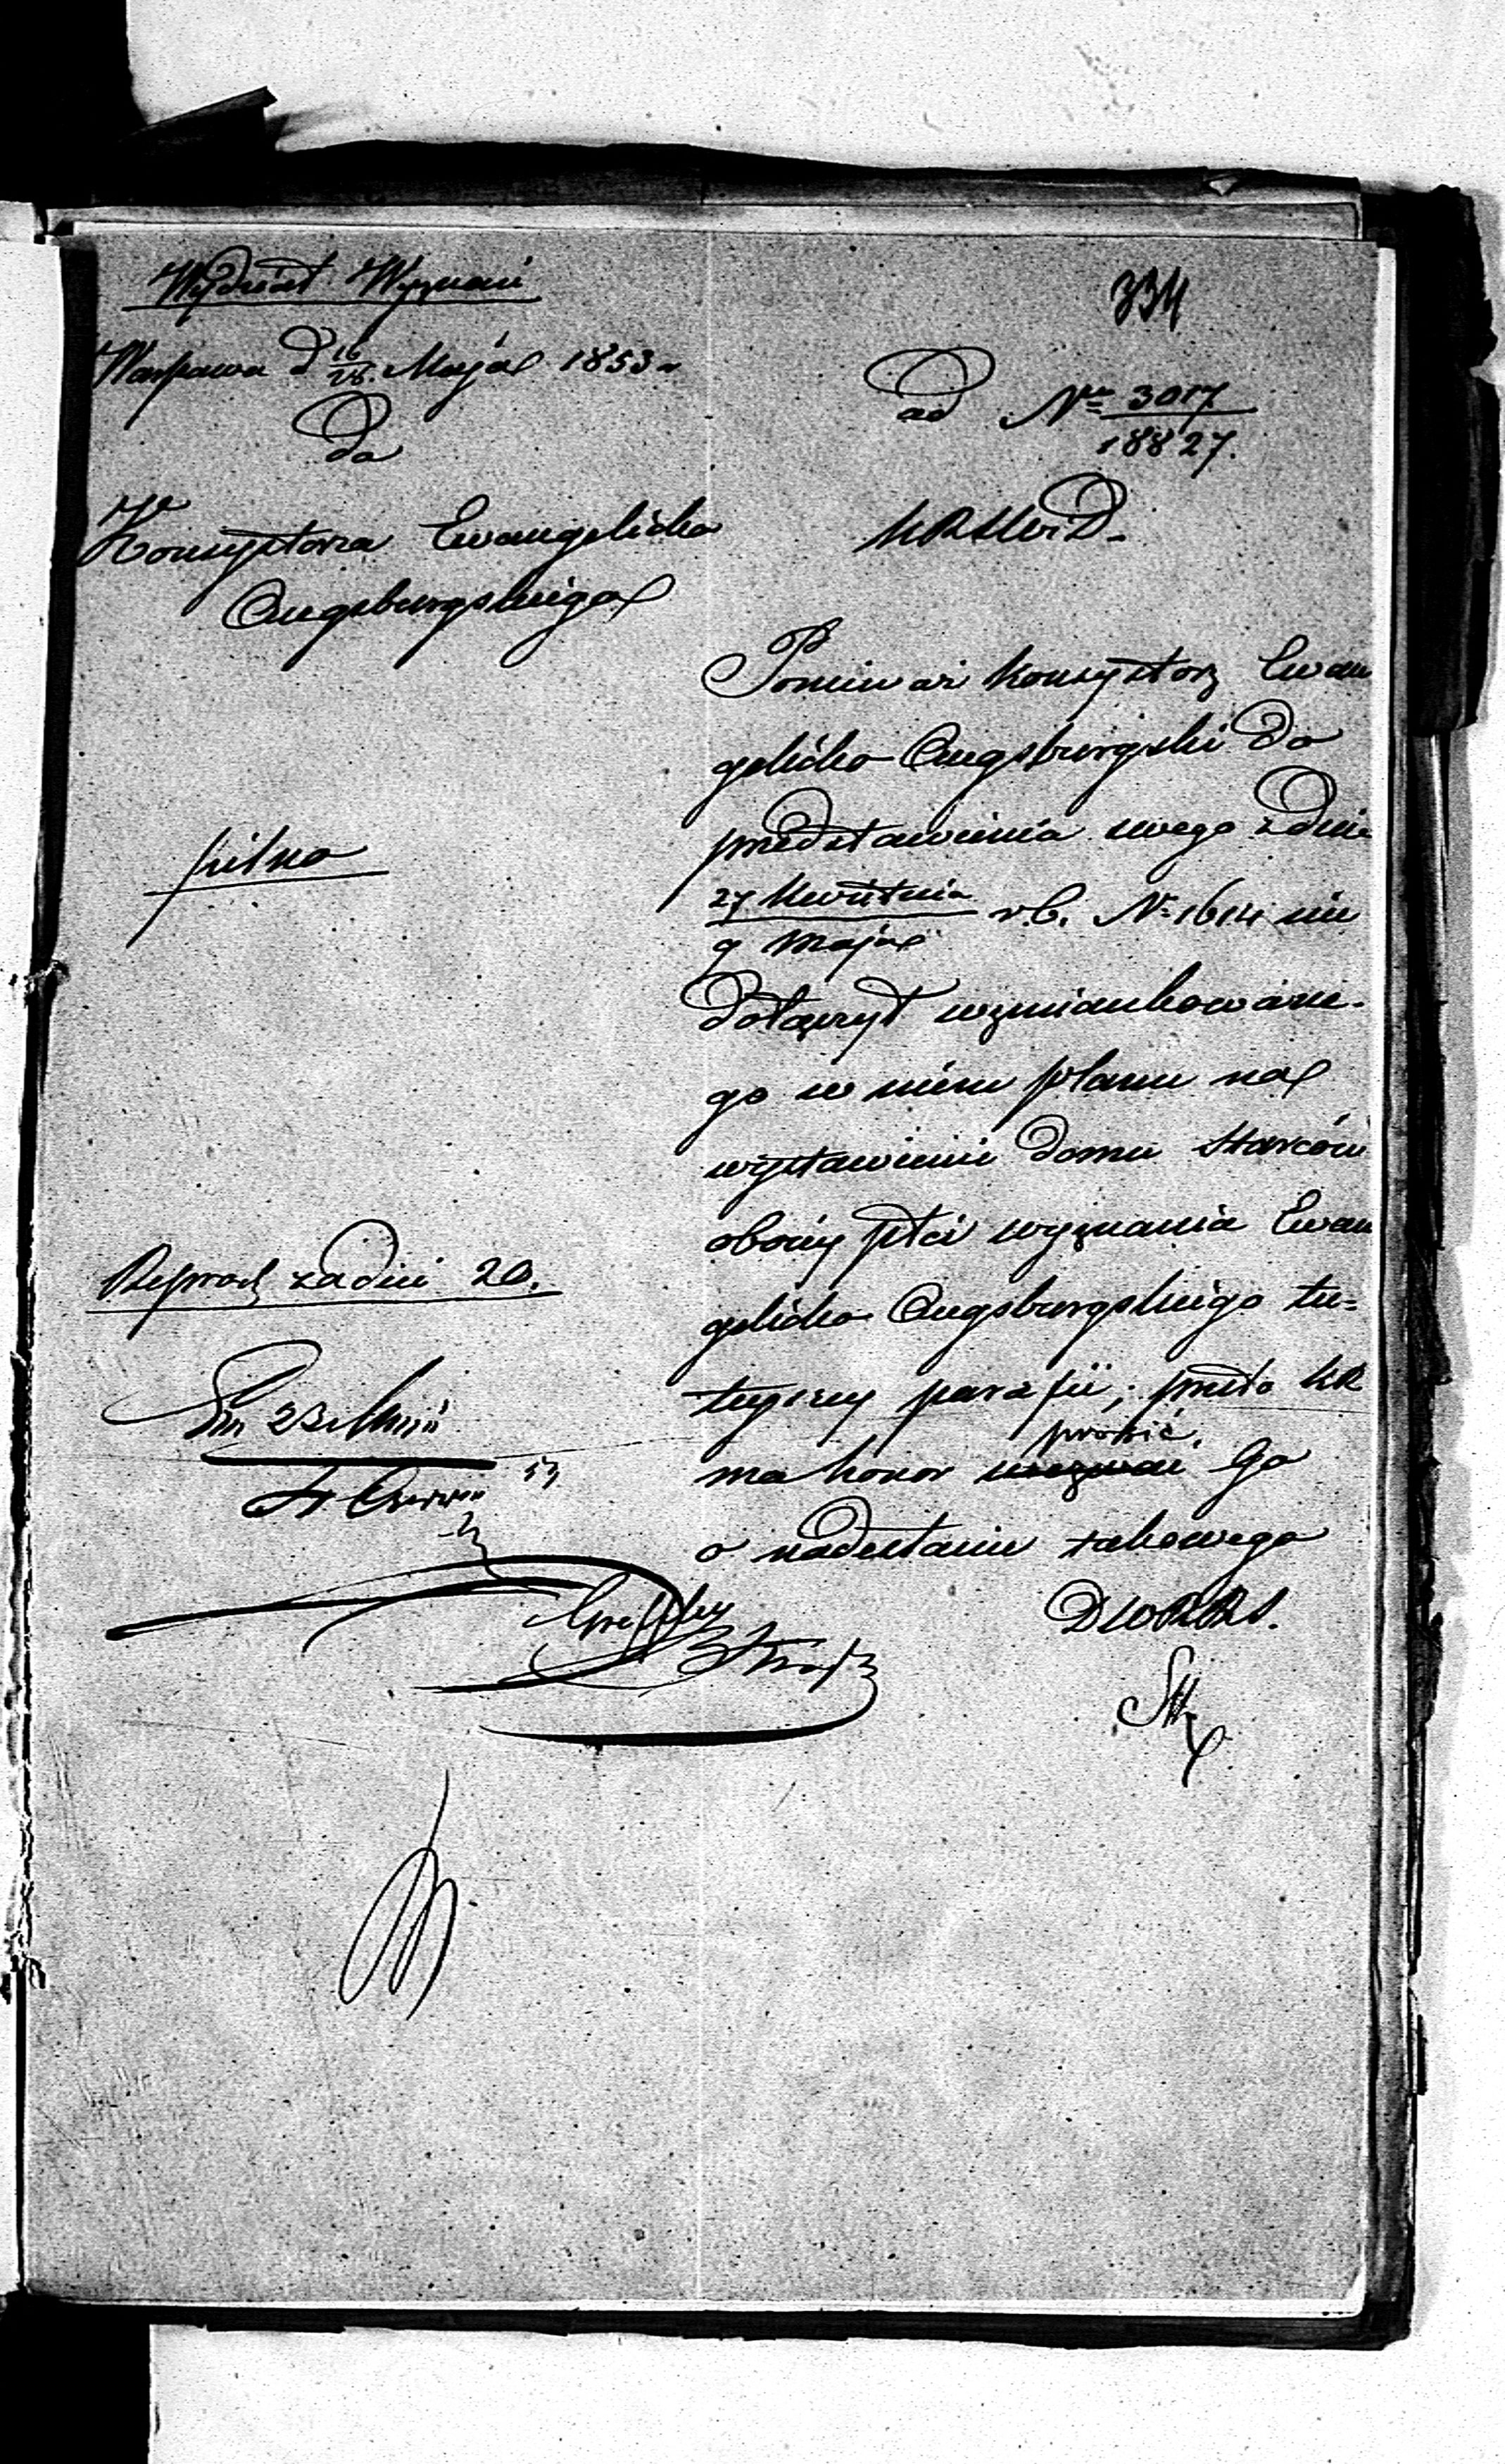 Wydział Wyznań
334
Warszawa d 16/28 Maja 1853 r
do
Konsystorza Ewangelicko
Augsburgskiego
pilno
Reprod za dni 20.
ad Nr 3017/18827.
KRSWiD.
Poniewáż Konsystorz Ewan
gelicko Augsburgski do
przedstawienia swego z dnia
27 Kwietnia/9 Maja r.b. Nr 1614 nie
dołączył wzmiankowane-
go w niém planu na
wystawienie domu starców
obojéj płci wyznania Ewan
gelicko Augsburgskiego tu=
tejszej parafii; przeto KR
prosić
ma honor wezwać Go
o nadesłanie takowego